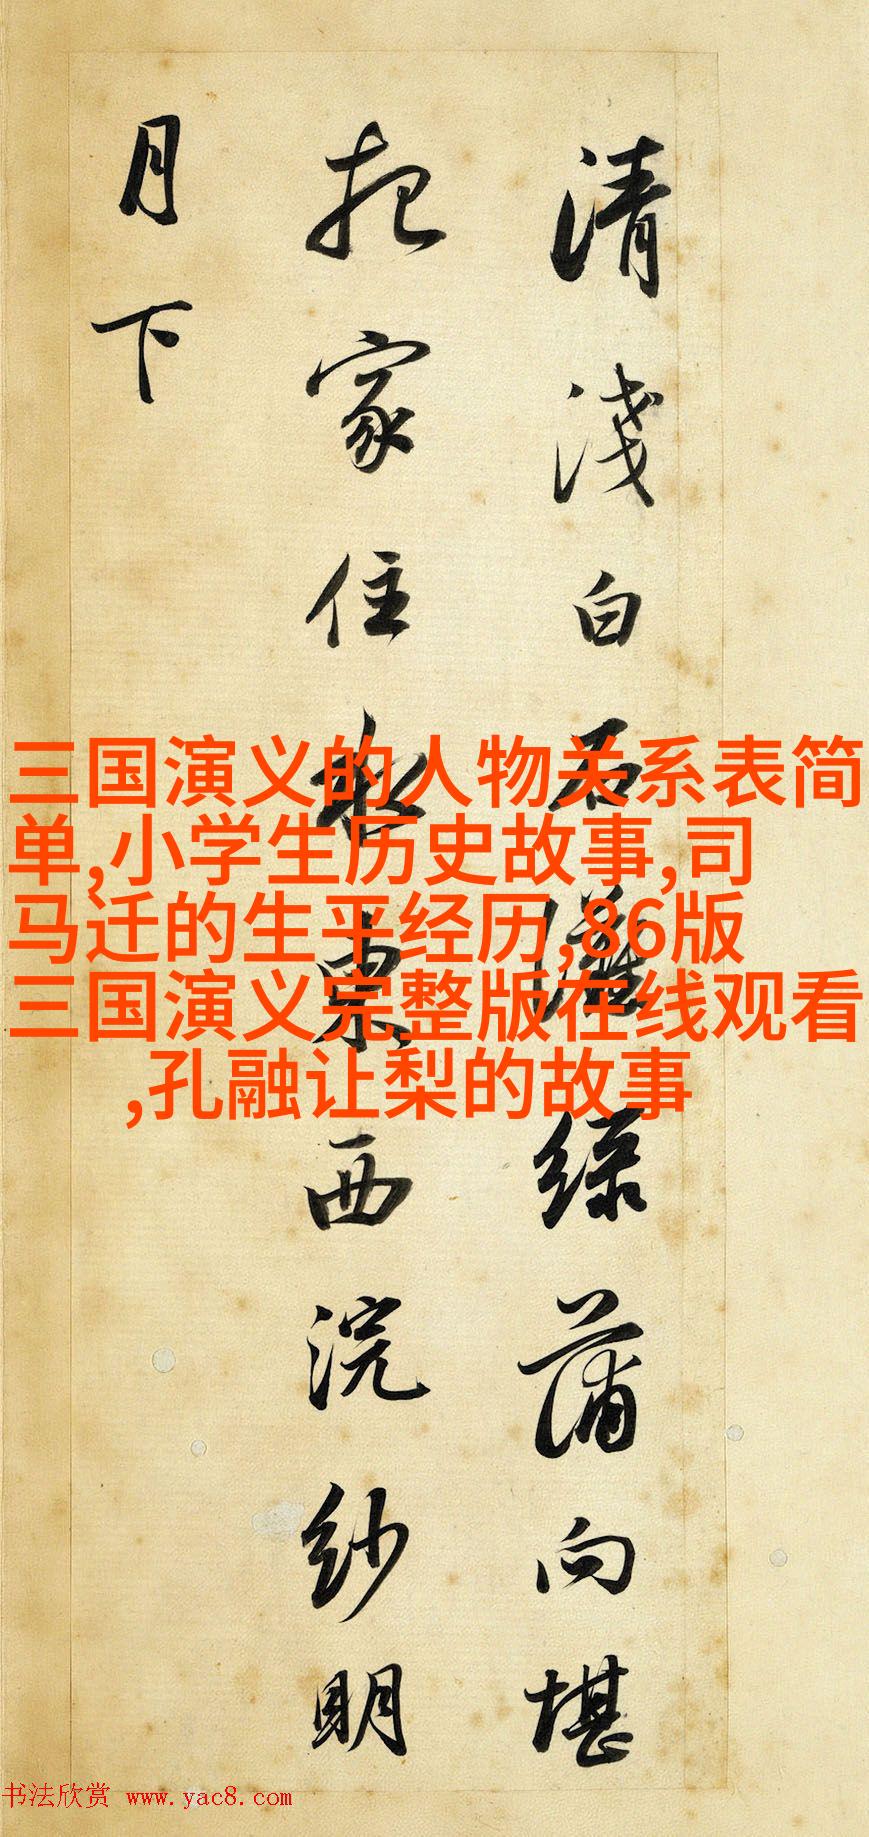 清淺白石灘綠蒲向堪
把家住水東西浣紗明
月下
三国演义的人物关系表简
单,小学生历史故事,司
马迁的生平经历,86版
三国演义完整版在线观看
,孔融让梨的故事
书法欣赏 www.yac8.com